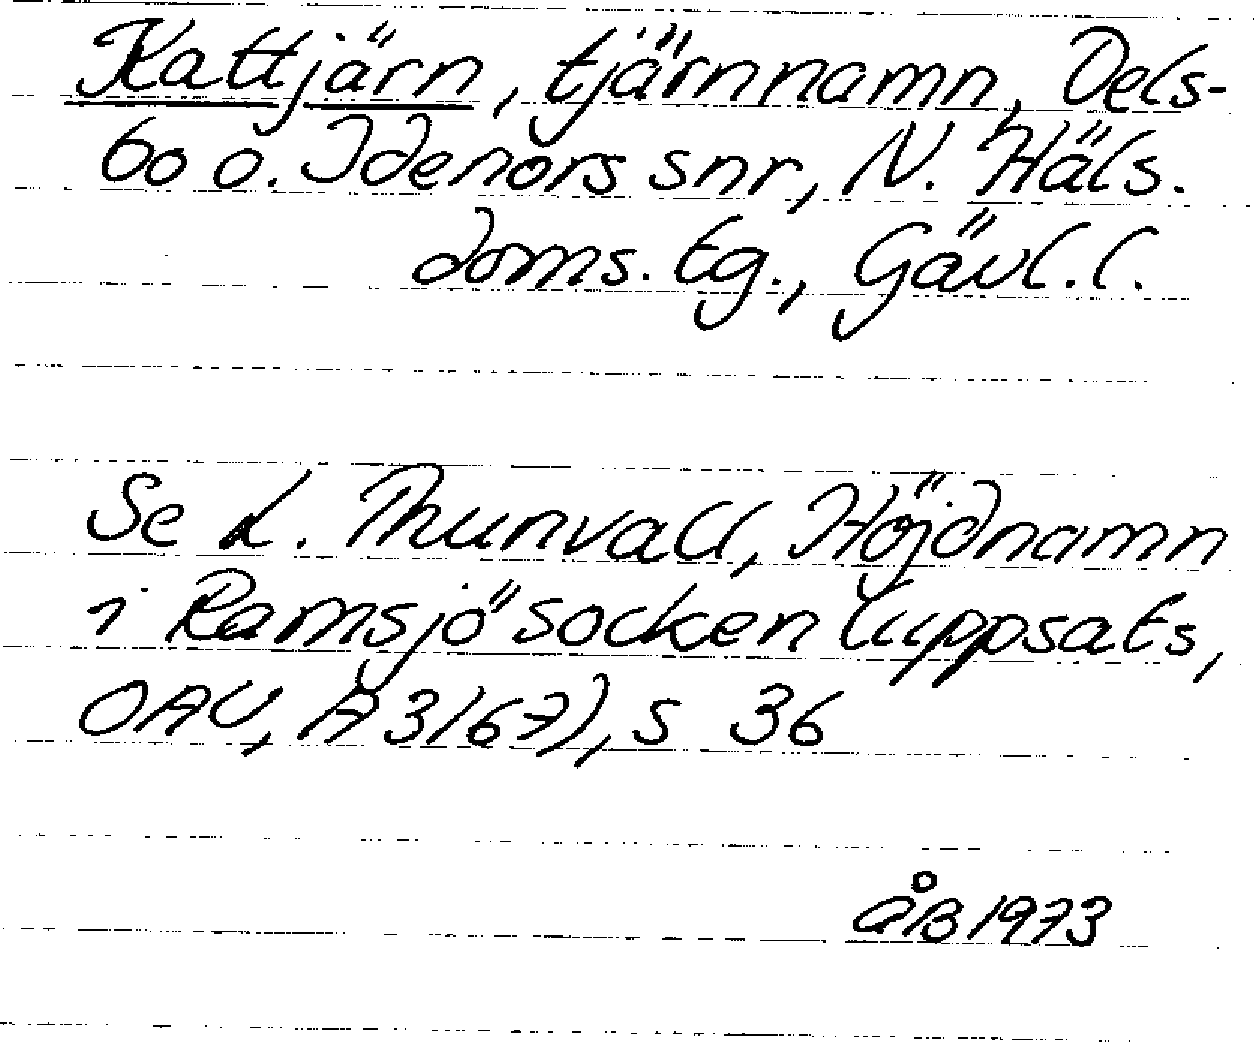 Kattjärn, tjärnnamn, Dels-
bo o. Idenors snr, N. Häls.
doms. tg., Gävl. l.
Se L. Thunvall, Höjdnamn
i Ramsjö socken (uppsats,
OAU, A 3167), s 36
åB 1973